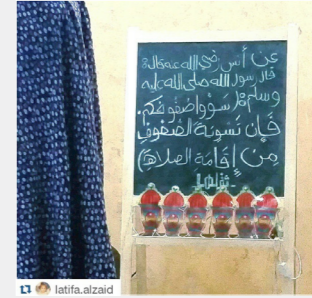 عن أنس رضي الله عنه قال:
قال رسول الله صلى الله عليه
وسلم: سووا صفوفكم،
فإن تسوية الصفوف
من إقامة الصلاة)
latifa.alzaid